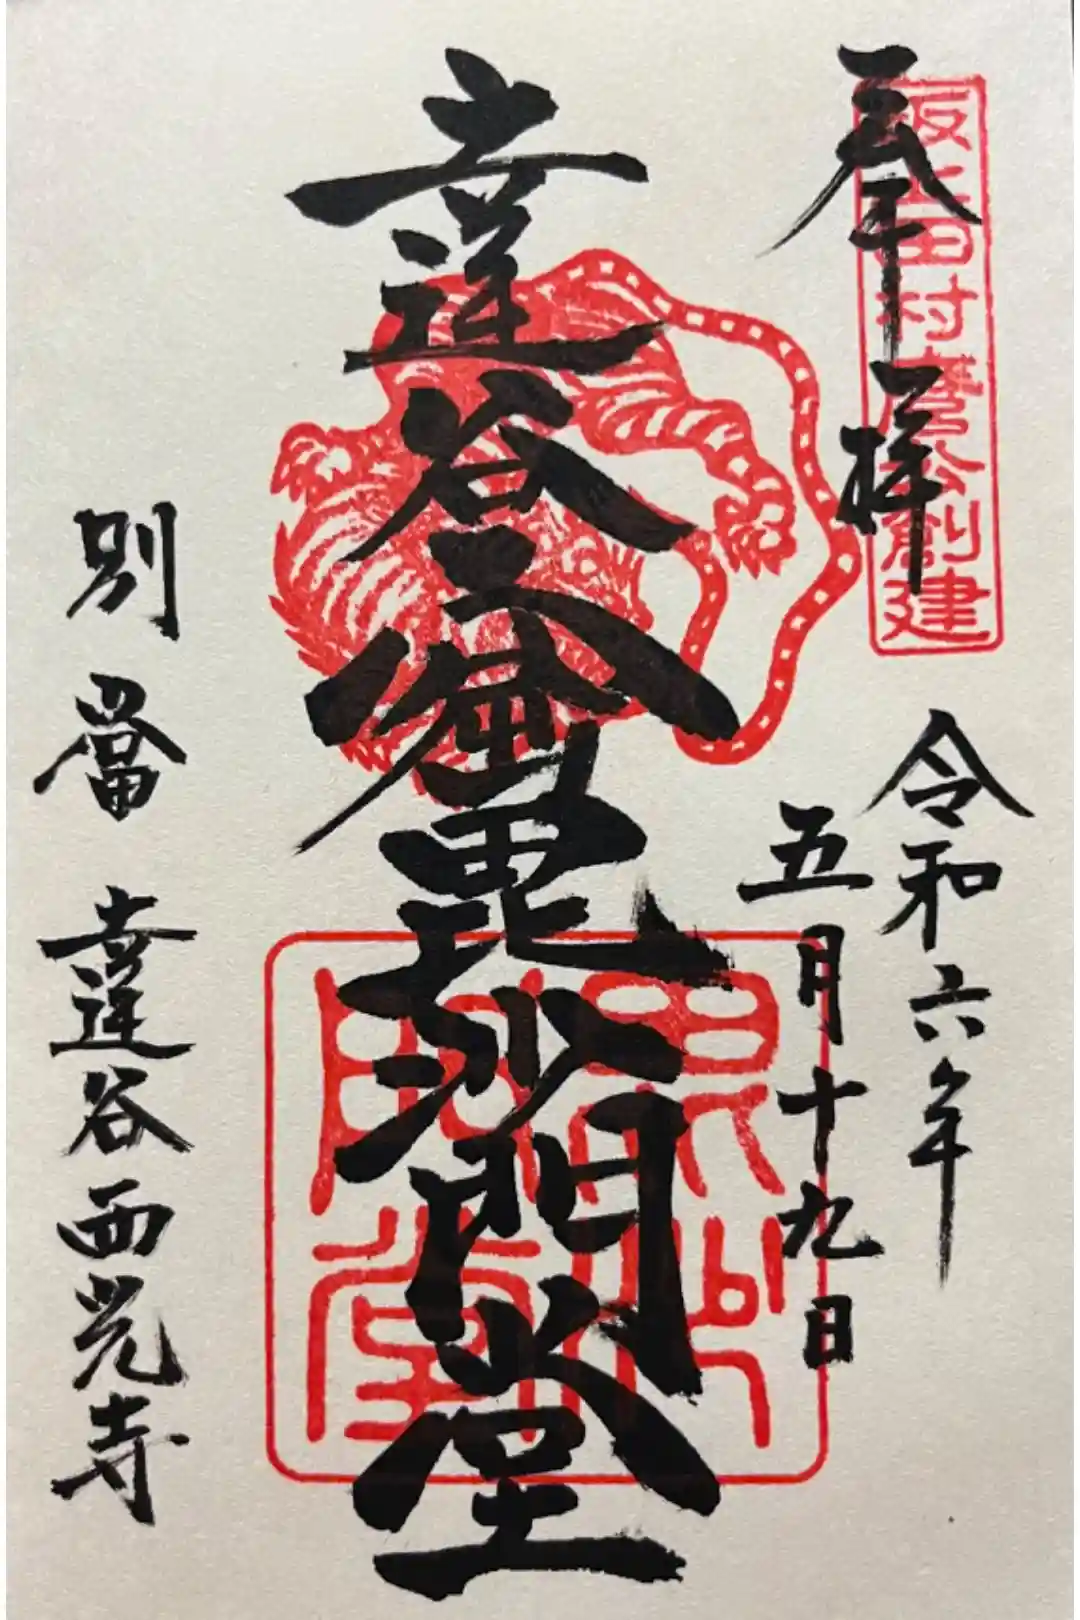 奉拝
坂上田村麿公創建
令和六年
五月十九日
達谷窟毘沙門堂
毘沙
門堂
別當 達谷西光寺